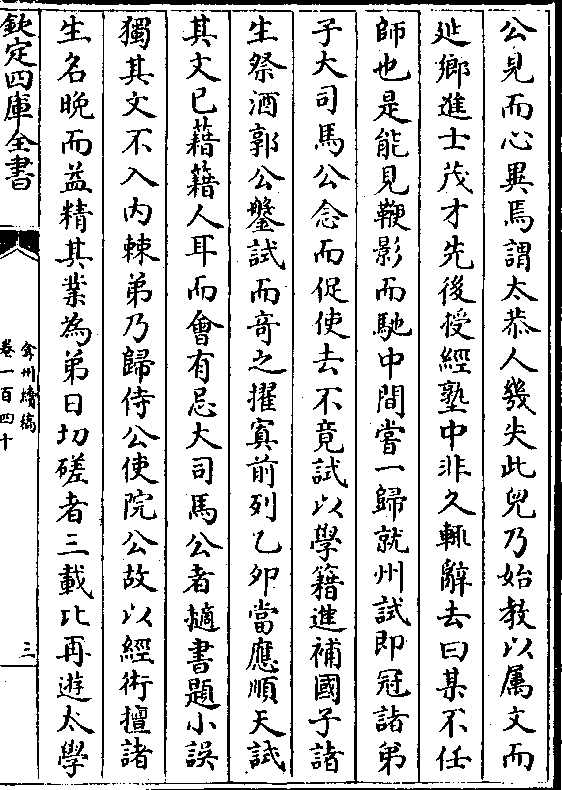 公見而心異焉謂太恭人幾失此兒乃始教以属文而
延鄉進士茂才先後授經塾中非久輒辭去曰某不任
師也是能見鞭影而馳中間嘗一歸就州試即冠諸弟
子大司馬公念而促使去不竟試以學籍進補國子諸
生祭酒郭公鎜試而奇之擢寘前列乙夘當應順天試
其文已藉藉人耳而會有忌大司馬公者擿書題小誤
獨其文不入内棘弟乃歸侍公使院公故以經術擅諸
生名晚而益精其業為弟日切磋者三載比再遊太學
欽定四庫全書
弇州續稿
卷一百四十
三